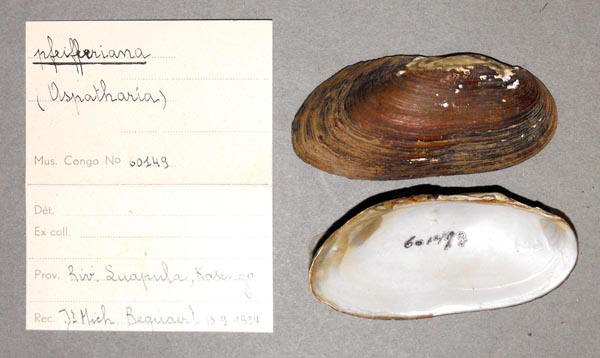 pfeifferiana
(Aspatharia)
Mus. Congo No 60149
Dét.
Ex coll.
Prov. Riv. Luapula, Kasenga
Rec. Mich. Bequaert
60149